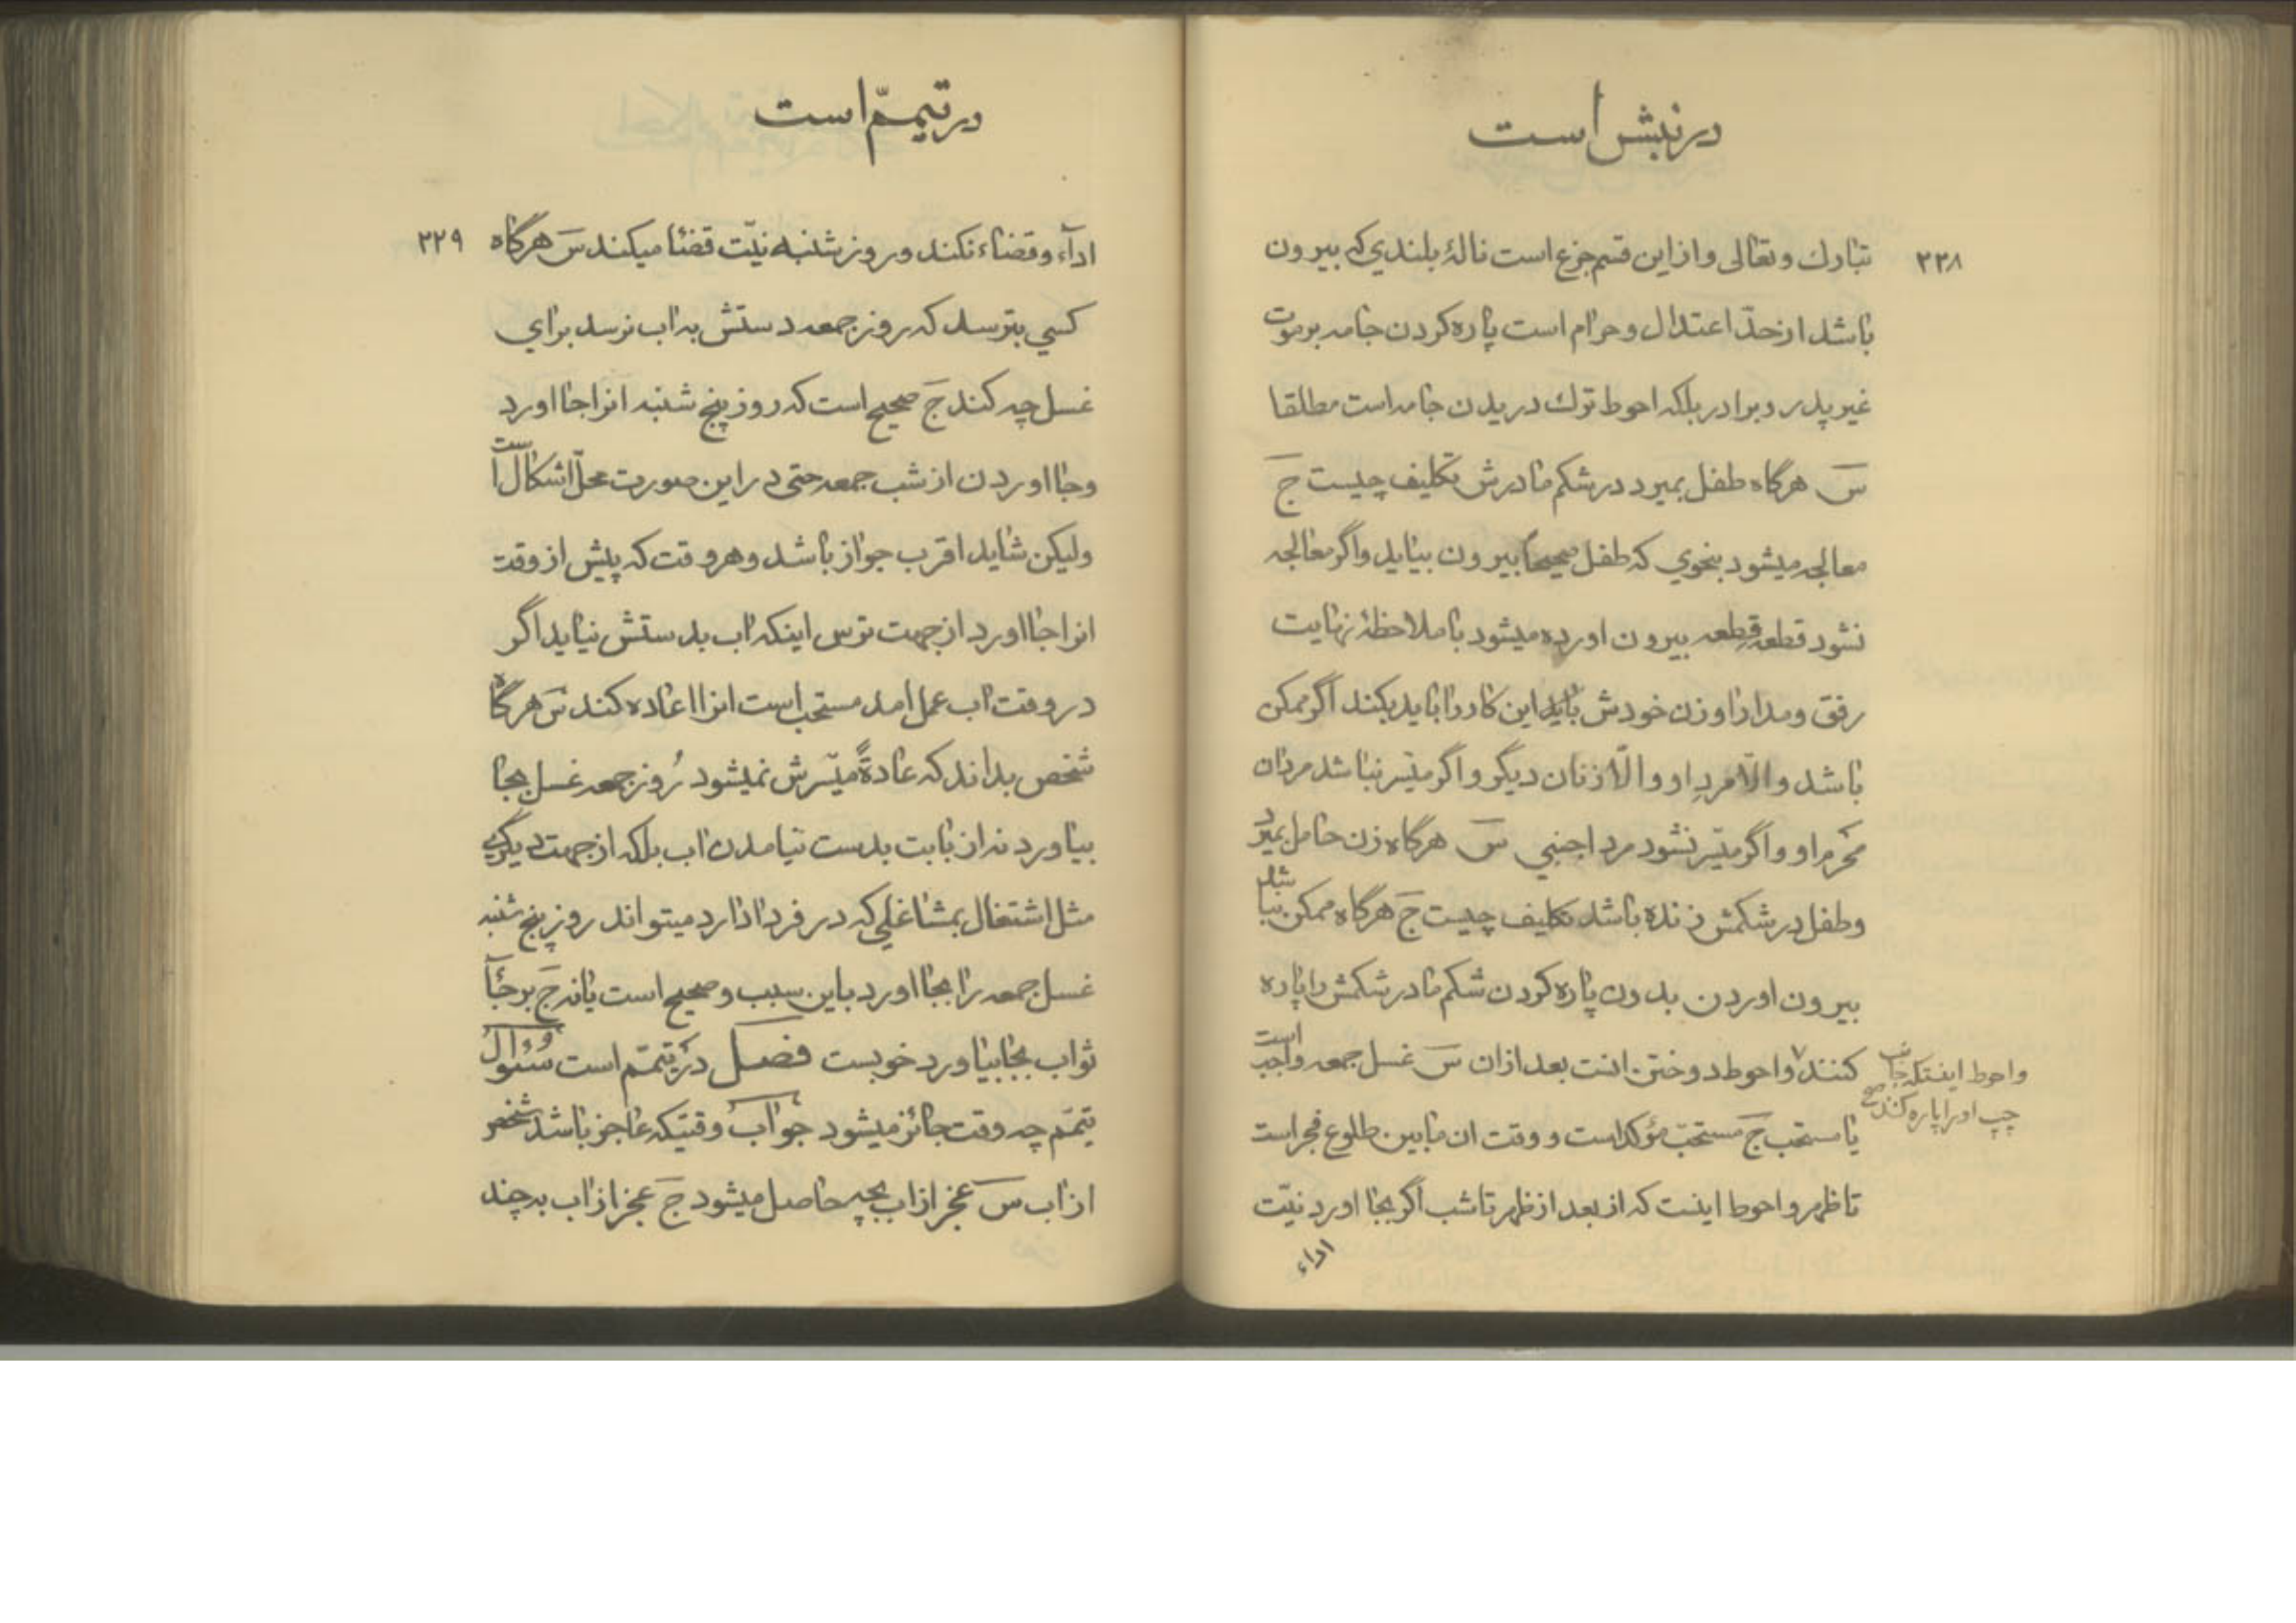 در نبش است
۲۲۸
تبارك وتعالی واز این قسم جزع است نالهٔ بلندي که بیرون
باشد از حدّ اعتدال وحرام است پاره کردن جامه بر موت
غیر پدر وبرادر بلکه احوط ترك دریدن جامه است مطلقا
سَ هرگاه طفل بمیرد در شکم مادرش تکلیف چیست جَ
معالجه میشود بنحوي که طفل صحیحاً بیرون بیاید واگر معالجه
نشود قطعه قطعه بیرون اورده میشود با ملاحظهٔ نهایت
رفق ومدارا وزن خودش باید این کار را باید بکند اگر ممکن
باشد والّا مردِ او والّا زنان دیگر واگر میّسر نباشد مردان
محرم او واگر میّسر نشود مرد اجنبي سَ هرگاه زن حامل بمیرد
وطفل در شکمش زنده باشد تکلیف چیست جَ هرگاه ممکن نباشد
بیرون اوردن بدون پاره کردن شکم مادر شکمش را پاره
کنند واحوط دوختن انست بعد ازان سَ غسل جمعه واجب است
یا مستحب جَ مستحبّ مؤکد است و وقت ان مابین طلوع فجر است
تا ظهر واحوط اینست که از بعد از ظهر تا شب اگر بجا اورد نیّت
اداء
واحوط اینستکه جانب
چپ او را پاره کنند صح
در تیمّم است
۲۲۹
ادآء وقضاء نکند وروز شنبه نیّت قضا میکند سَ هرگاه
کسي بترسد که روز جمعه دستش به اب نرسد براي
غسل چه کند جَ صحیح است که روز پنج شنبه انرا جا اورد
وجا اوردن از شب جمعه حتی در این صورت محلّ اشکال است
ولیکن شاید اقرب جواز باشد وهر وقت که پیش از وقت
انرا جا اورد از جهت ترس اینکه اب بدستش نیاید اگر
در وقت اب عمل امد مستحب است انرا اعاده کند سَ هرگاه
شخص بداند که عادةً میّسرش نمیشود روز جمعه غسل بجا
بیاورد نه از بابت بدست نیامدن اب بلکه از جهت دیگري
مثل اشتغال بمشاغلي که در فردا دارد میتواند روز پنج شنبه
غسل جمعه را بجا اورد باین سبب وصحیح است یا نه جَ برجآء
ثواب بجا بیاورد خوبست فصل در تیمّم است سئوال
تیمّم چه وقت جائز میشود جواب وقتیکه عاجز باشد شخص
از اب سَ عجز از اب بچه حاصل میشود جَ عجز از اب به چند